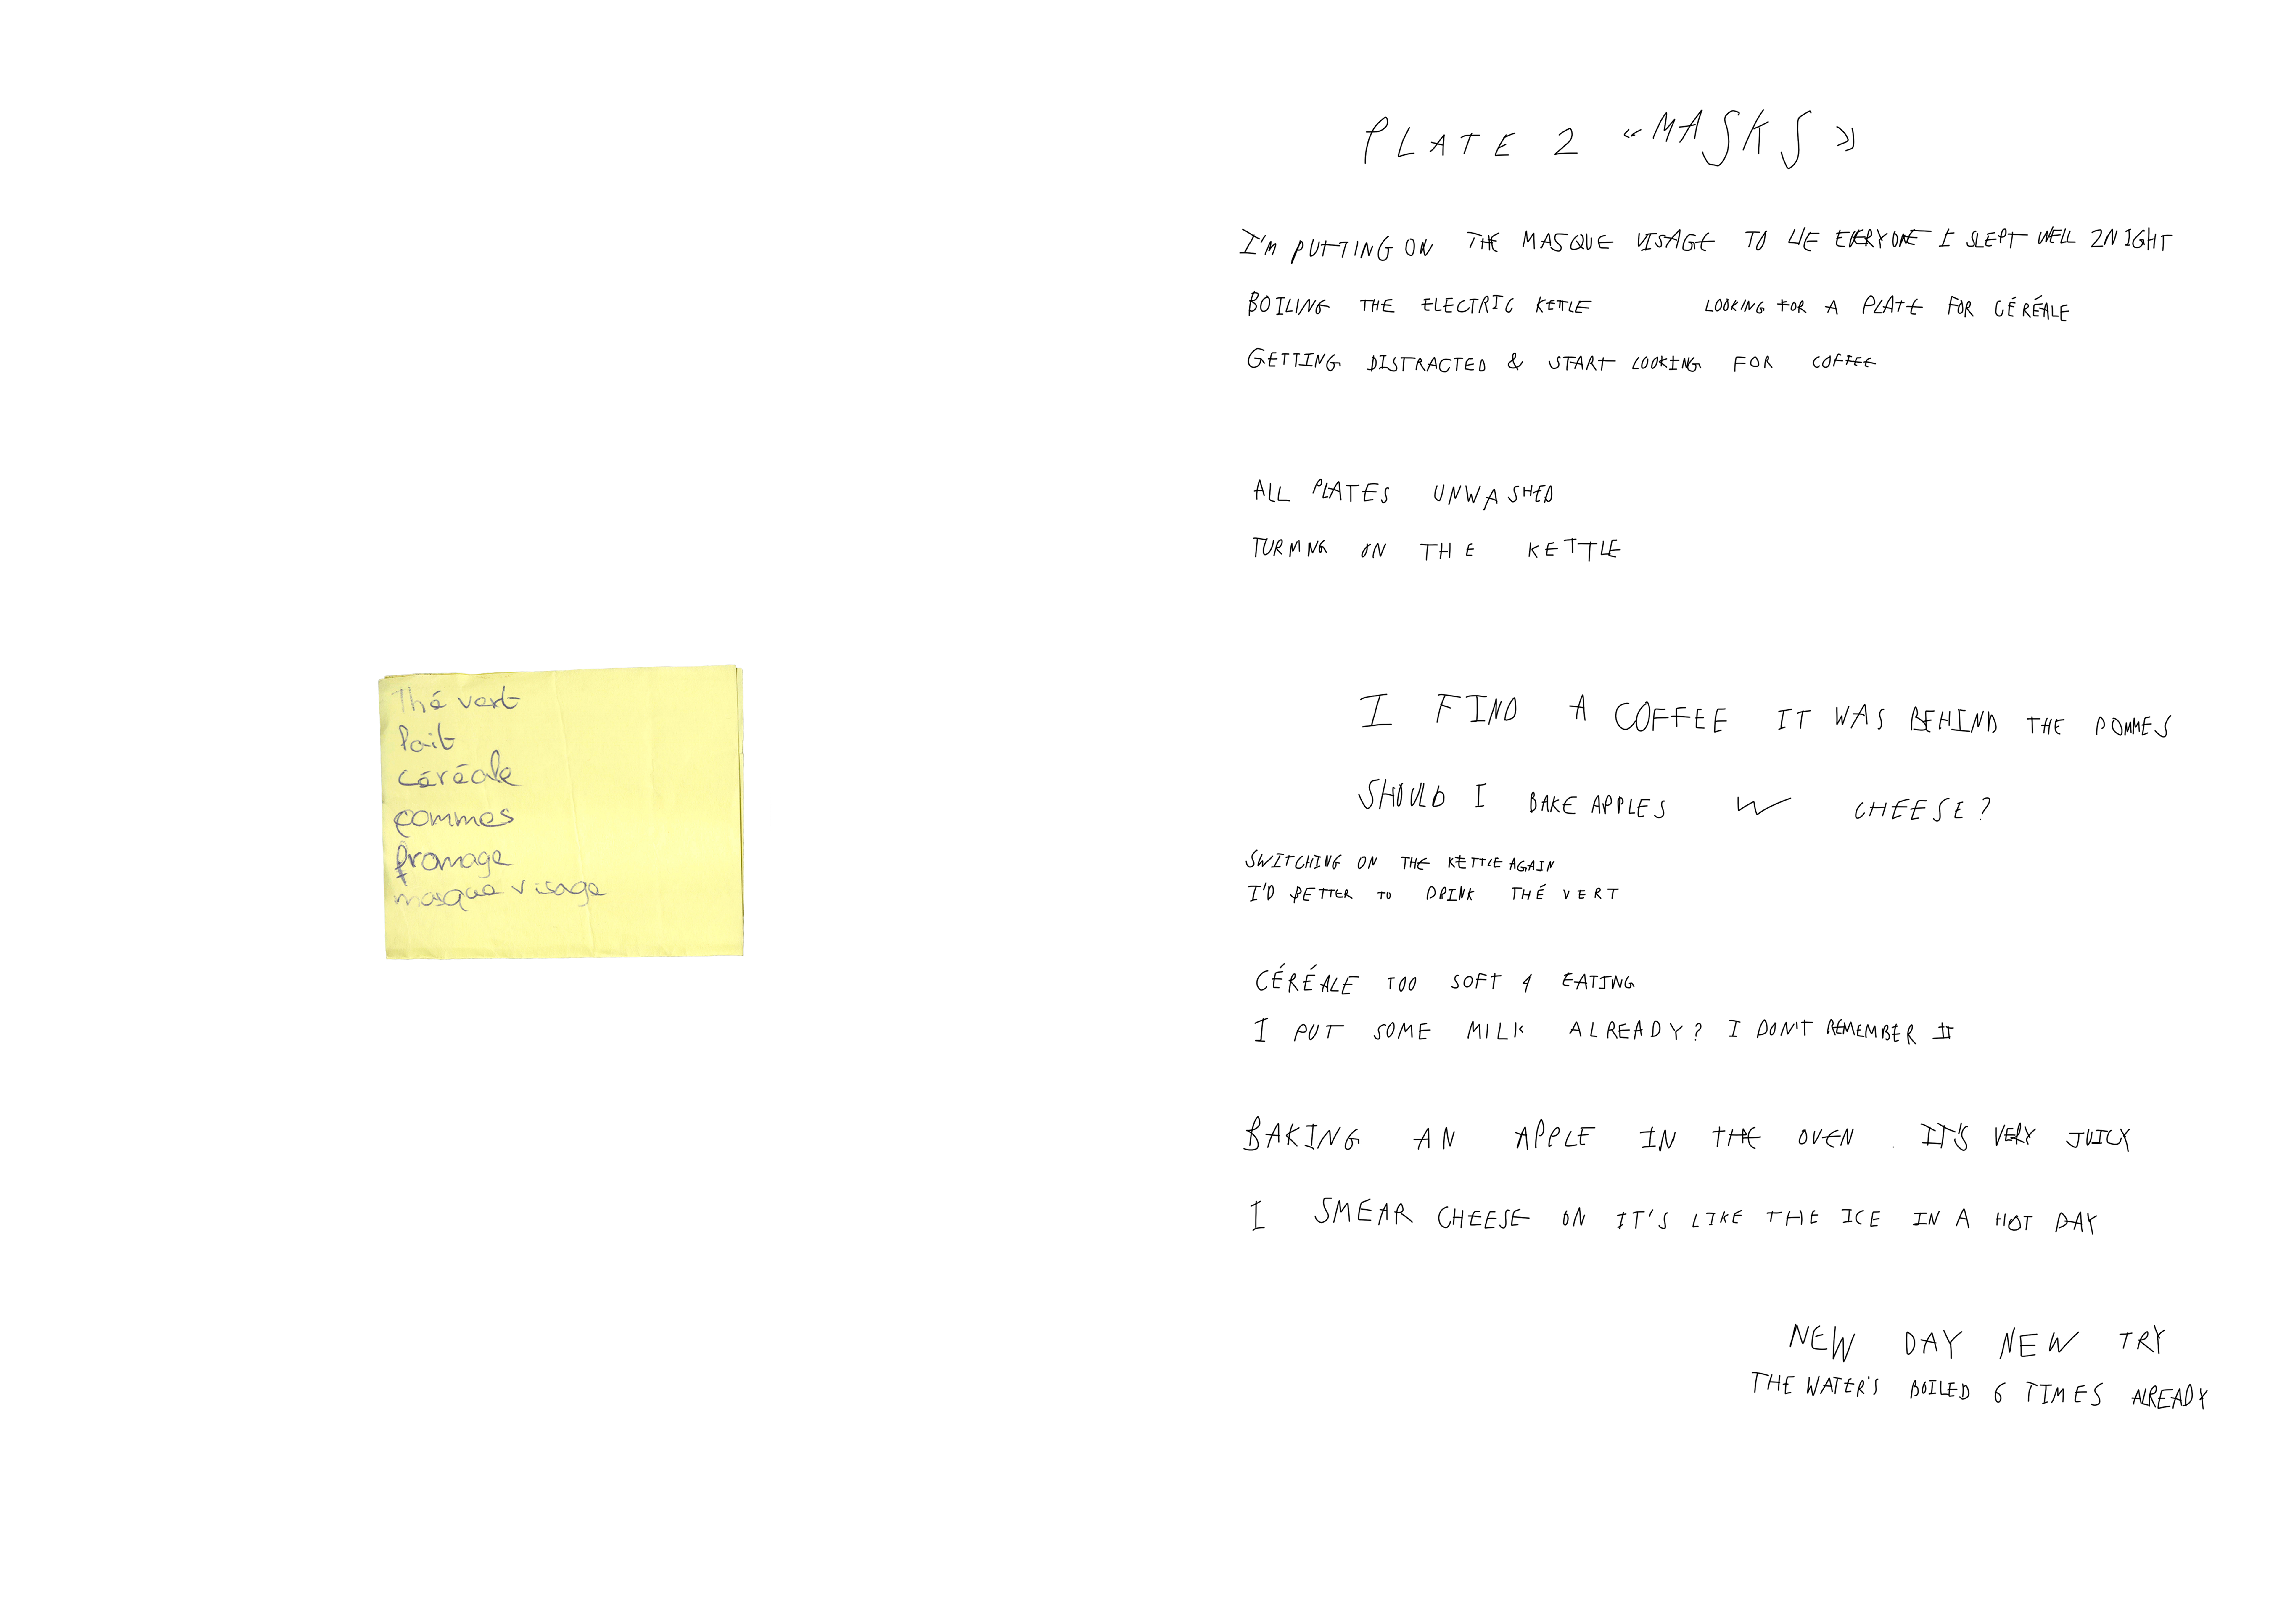 Thé vert
lait
céréale
pommes
fromage
masque visage
PLATE 2 «MASKS»
I'M PUTTING ON THE MASQUE VISAGE TO LIE EVERYONE I SLEPT WELL 2NIGHT
BOILING THE ELECTRIC KETTLE LOOKING FOR A PLATE FOR CÉRÉALE
GETTING DISTRACTED & START LOOKING FOR COFFEE
ALL PLATES UNWASHED
TURNING ON THE KETTLE
I FIND A COFFEE IT WAS BEHIND THE POMMES
SHOULD I BAKE APPLES W CHEESE?
SWITCHING ON THE KETTLE AGAIN
I'D BETTER TO DRINK THÉ VERT
CÉRÉALE TOO SOFT 4 EATING
I PUT SOME MILK ALREADY? I DON'T REMEMBER IT
BAKING AN APPLE IN THE OVEN . IT'S VERY JUICY
I SMEAR CHEESE ON IT'S LIKE THE ICE IN A HOT DAY
NEW DAY NEW TRY
THE WATER'S BOILED 6 TIMES ALREADY